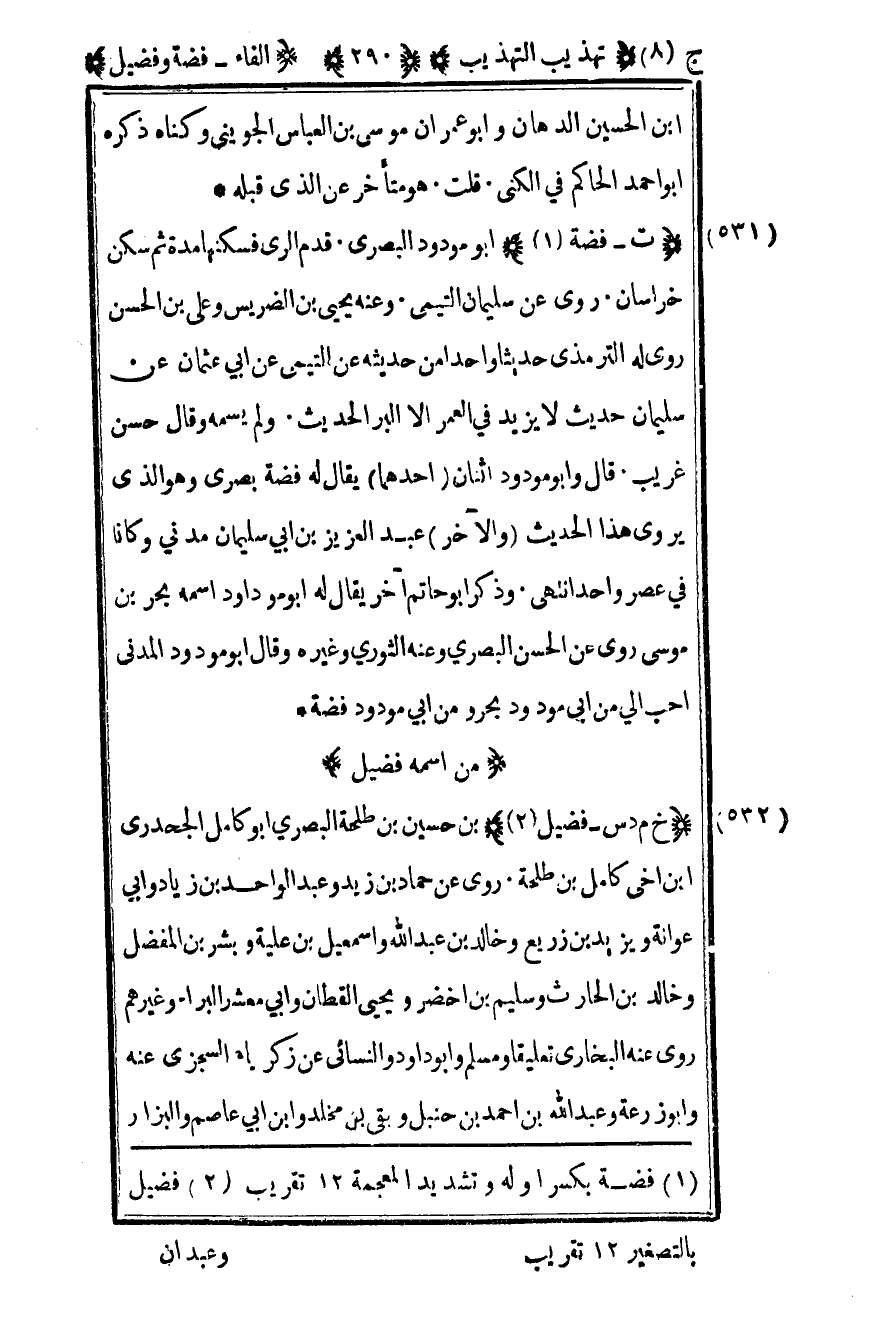 ج (٨) ﴿ تهذيب التهذيب ﴾ ﴿ ٢٩٠ ﴾ ﴿ الفاء ـ فضة وفضيل ﴾
ابن الحسين الدهان وابو عمران موسى بن العباس الجويني وكناه ذكره
ابو احمد الحاكم في الكنى · قلت · هو متأخر عن الذى قبله *
(٥٣١) ﴿ ت ـ فضة (١) ﴾ ابو مودود البصرى · قدم الرى فسكنها مدة ثم سكن
خراسان · روى عن سليمان التيمى · وعنه يحيى بن الضريس وعلى بن الحسن
روى له الترمذى حديثا واحدا من حديثه عن التيمى عن ابي عثمان عن
سليمان حديث لا يزيد في العمر الا البر الحديث · ولم يسمه وقال حسن
غريب · قال وابو مودود اثنان (احدهما) يقال له فضة بصرى وهو الذى
يروى هذا الحديث (والآخر) عبد العزيز بن ابي سليمان مدني وكانا
في عصر واحد انتهى · وذكر ابو حاتم آخر يقال له ابو مو داود اسمه بحر بن
موسى روى عن الحسن البصري وعنه الثوري وغيره وقال ابو مودود المدنى
احب الي من ابى مودود بحر و من ابي مودود فضة *
﴿ من اسمه فضيل ﴾
(٥٣٢) ﴿ خ م د س ـ فضيل (٢) ﴾ بن حسين بن طلحة البصري ابو كامل الجحدرى
ابن اخى كامل بن طلحة · روى عن حماد بن زيد وعبد الواحد بن زياد وابي
عوانة ويزيد بن زريع وخالد بن عبد الله واسمعيل بن علية وبشر بن المفضل
وخالد بن الحارث وسليم بن اخضر ويحيى القطان وابي معشر البراء وغيرهم
روى عنه البخارى تعليقا ومسلم وابو داود والنسائى عن زكرياء السجزى عنه
وابو زرعة وعبد الله بن احمد بن حنبل وبقى بن مخلد وابن ابي عاصم والبزار
(١) فضة بكسر اوله وتشديد المعجمة ١٢ تقريب (٢) فضيل
بالتصغير ١٢ تقريب وعبدان